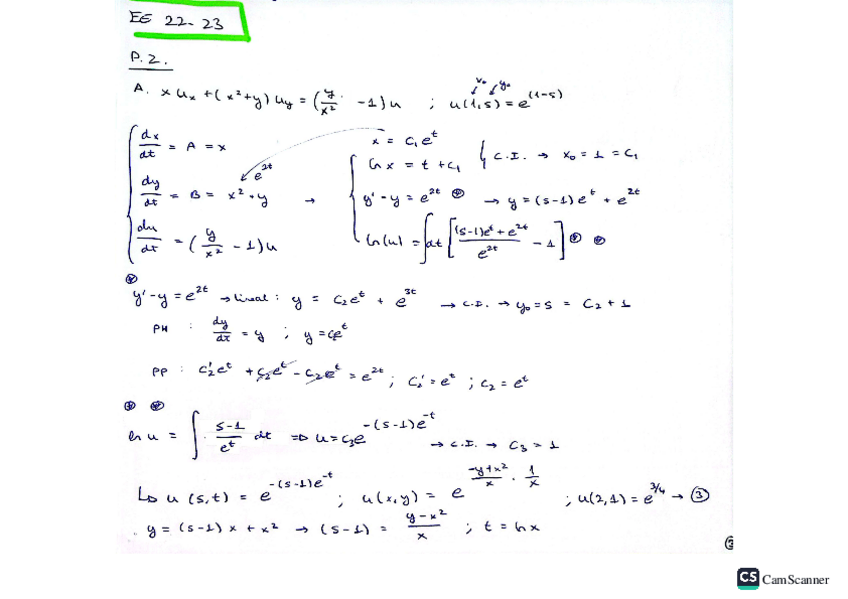 EE 22-23
P.2.
A. x u_x + (x²+y) u_y = (y/x² - 1) u ; u(1,s) = e^(1-s)
x₀ y₀
dx/dt = A = x
x = c₁e^t
ln x = t + c₁ { C.I. → x₀ = 1 = c₁
e^2t
dy/dt = B = x² + y → y' - y = e^2t ⊛ → y = (s-1)e^t + e^2t
du/dt = (y/x² - 1) u
ln(u) = ∫dt [((s-1)e^t + e^2t)/e^2t - 1] ⊛ ⊛
⊛
y' - y = e^2t → lineal : y = c₂e^t + e^3t → C.I. → y₀ = s = c₂ + 1
PH : dy/dt = y ; y = ce^t
PP : c₂'e^t + c₂e^t - c₂e^t = e^2t ; c₂' = e^t ; c₂ = e^t
⊛ ⊛
ln u = ∫ (s-1)/e^t dt ⇒ u = c₃e^-(s-1)e^-t → C.I. → c₃ = 1
↳ u(s,t) = e^-(s-1)e^-t ; u(x,y) = e^((-y+x²)/x · 1/x) ; u(2,1) = e^3/4 → ③
. y = (s-1)x + x² → (s-1) = (y-x²)/x ; t = ln x
CS CamScanner